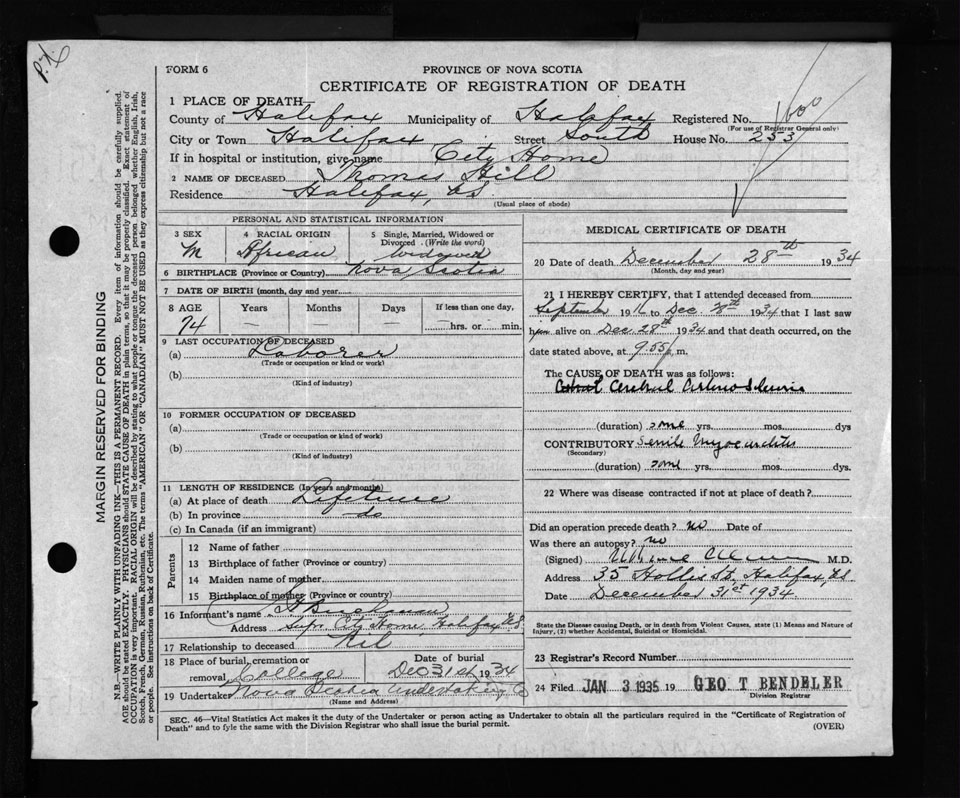 P.X.
FORM 6
PROVINCE OF NOVA SCOTIA
CERTIFICATE OF REGISTRATION OF DEATH
1 PLACE OF DEATH—
County of Halifax Municipality of Halifax Registered No.
(For use of Registrar General only)
City or Town Halifax Street South House No. 253
If in hospital or institution, give name City Home
2 NAME OF DECEASED Thomas Hill
Residence Halifax, N.S.
(Usual place of abode)
PERSONAL AND STATISTICAL INFORMATION
3 SEX
M
4 RACIAL ORIGIN
African
5 Single, Married, Widowed or Divorced. (Write the word)
Widowed
6 BIRTHPLACE (Province or Country) Nova Scotia
7 DATE OF BIRTH (month, day and year)
8 AGE Years Months Days If less than one day,
74 — — — hrs. or min.
9 LAST OCCUPATION OF DECEASED
(a) Laborer
(Trade or occupation or kind of work)
(b)
(Kind of industry)
10 FORMER OCCUPATION OF DECEASED
(a)
(Trade or occupation or kind of work)
(b)
(Kind of industry)
11 LENGTH OF RESIDENCE (In years and months)
(a) At place of death Lifetime
(b) In province do
(c) In Canada (if an immigrant)
Parents
12 Name of father
13 Birthplace of father (Province or country)
14 Maiden name of mother
15 Birthplace of mother (Province or country)
16 Informant's name Buchanan
Address Supt. City Home Halifax N.S.
17 Relationship to deceased Nil
18 Place of burial, cremation or removal College
Date of burial Dec 31st 1934
19 Undertaker Nova Scotia Undertaking Co
(Name and Address)
MEDICAL CERTIFICATE OF DEATH
20 Date of death December 28th 1934
(Month, day and year)
21 I HEREBY CERTIFY, that I attended deceased from
September 16 to Dec. 28th 1934 that I last saw
him alive on Dec 28th 1934 and that death occurred, on the
date stated above, at 9.55 p.m.
The CAUSE OF DEATH was as follows:
Cerebral Arterio Sclerosis
(duration) some yrs. mos. dys
CONTRIBUTORY Senile Myocarditis
(Secondary)
(duration) some yrs. mos. dys.
22 Where was disease contracted if not at place of death?
Did an operation precede death? no Date of
Was there an autopsy? no
(Signed) M.D.
Address 35 Hollis St. Halifax N.S.
Date December 31st 1934
State the Disease causing Death, or in death from Violent Causes, state (1) Means and Nature of
Injury, (2) whether Accidental, Suicidal or Homicidal.
23 Registrar's Record Number
24 Filed JAN 3 1935 19 GEO T BENDELER
Division Registrar
SEC. 46—Vital Statistics Act makes it the duty of the Undertaker or person acting as Undertaker to obtain all the particulars required in the "Certificate of Registration of
Death" and to fyle the same with the Division Registrar who shall issue the burial permit.
(OVER)
MARGIN RESERVED FOR BINDING
N.B.—WRITE PLAINLY WITH UNFADING INK—THIS IS A PERMANENT RECORD. Every item of information should be carefully supplied.
AGE should be stated EXACTLY. PHYSICIANS should STATE CAUSE OF DEATH in plain terms, so that it may be properly classified. Exact statement of
OCCUPATION is very important. RACIAL ORIGIN will be described by stating to what people or tongue the deceased person belonged whether English, Irish,
Scotch, French, German, Russian, Ruthenian, etc. The terms "AMERICAN" OR "CANADIAN" MUST NOT BE USED as they express citizenship but not a race
or people. See instructions on back of Certificate.